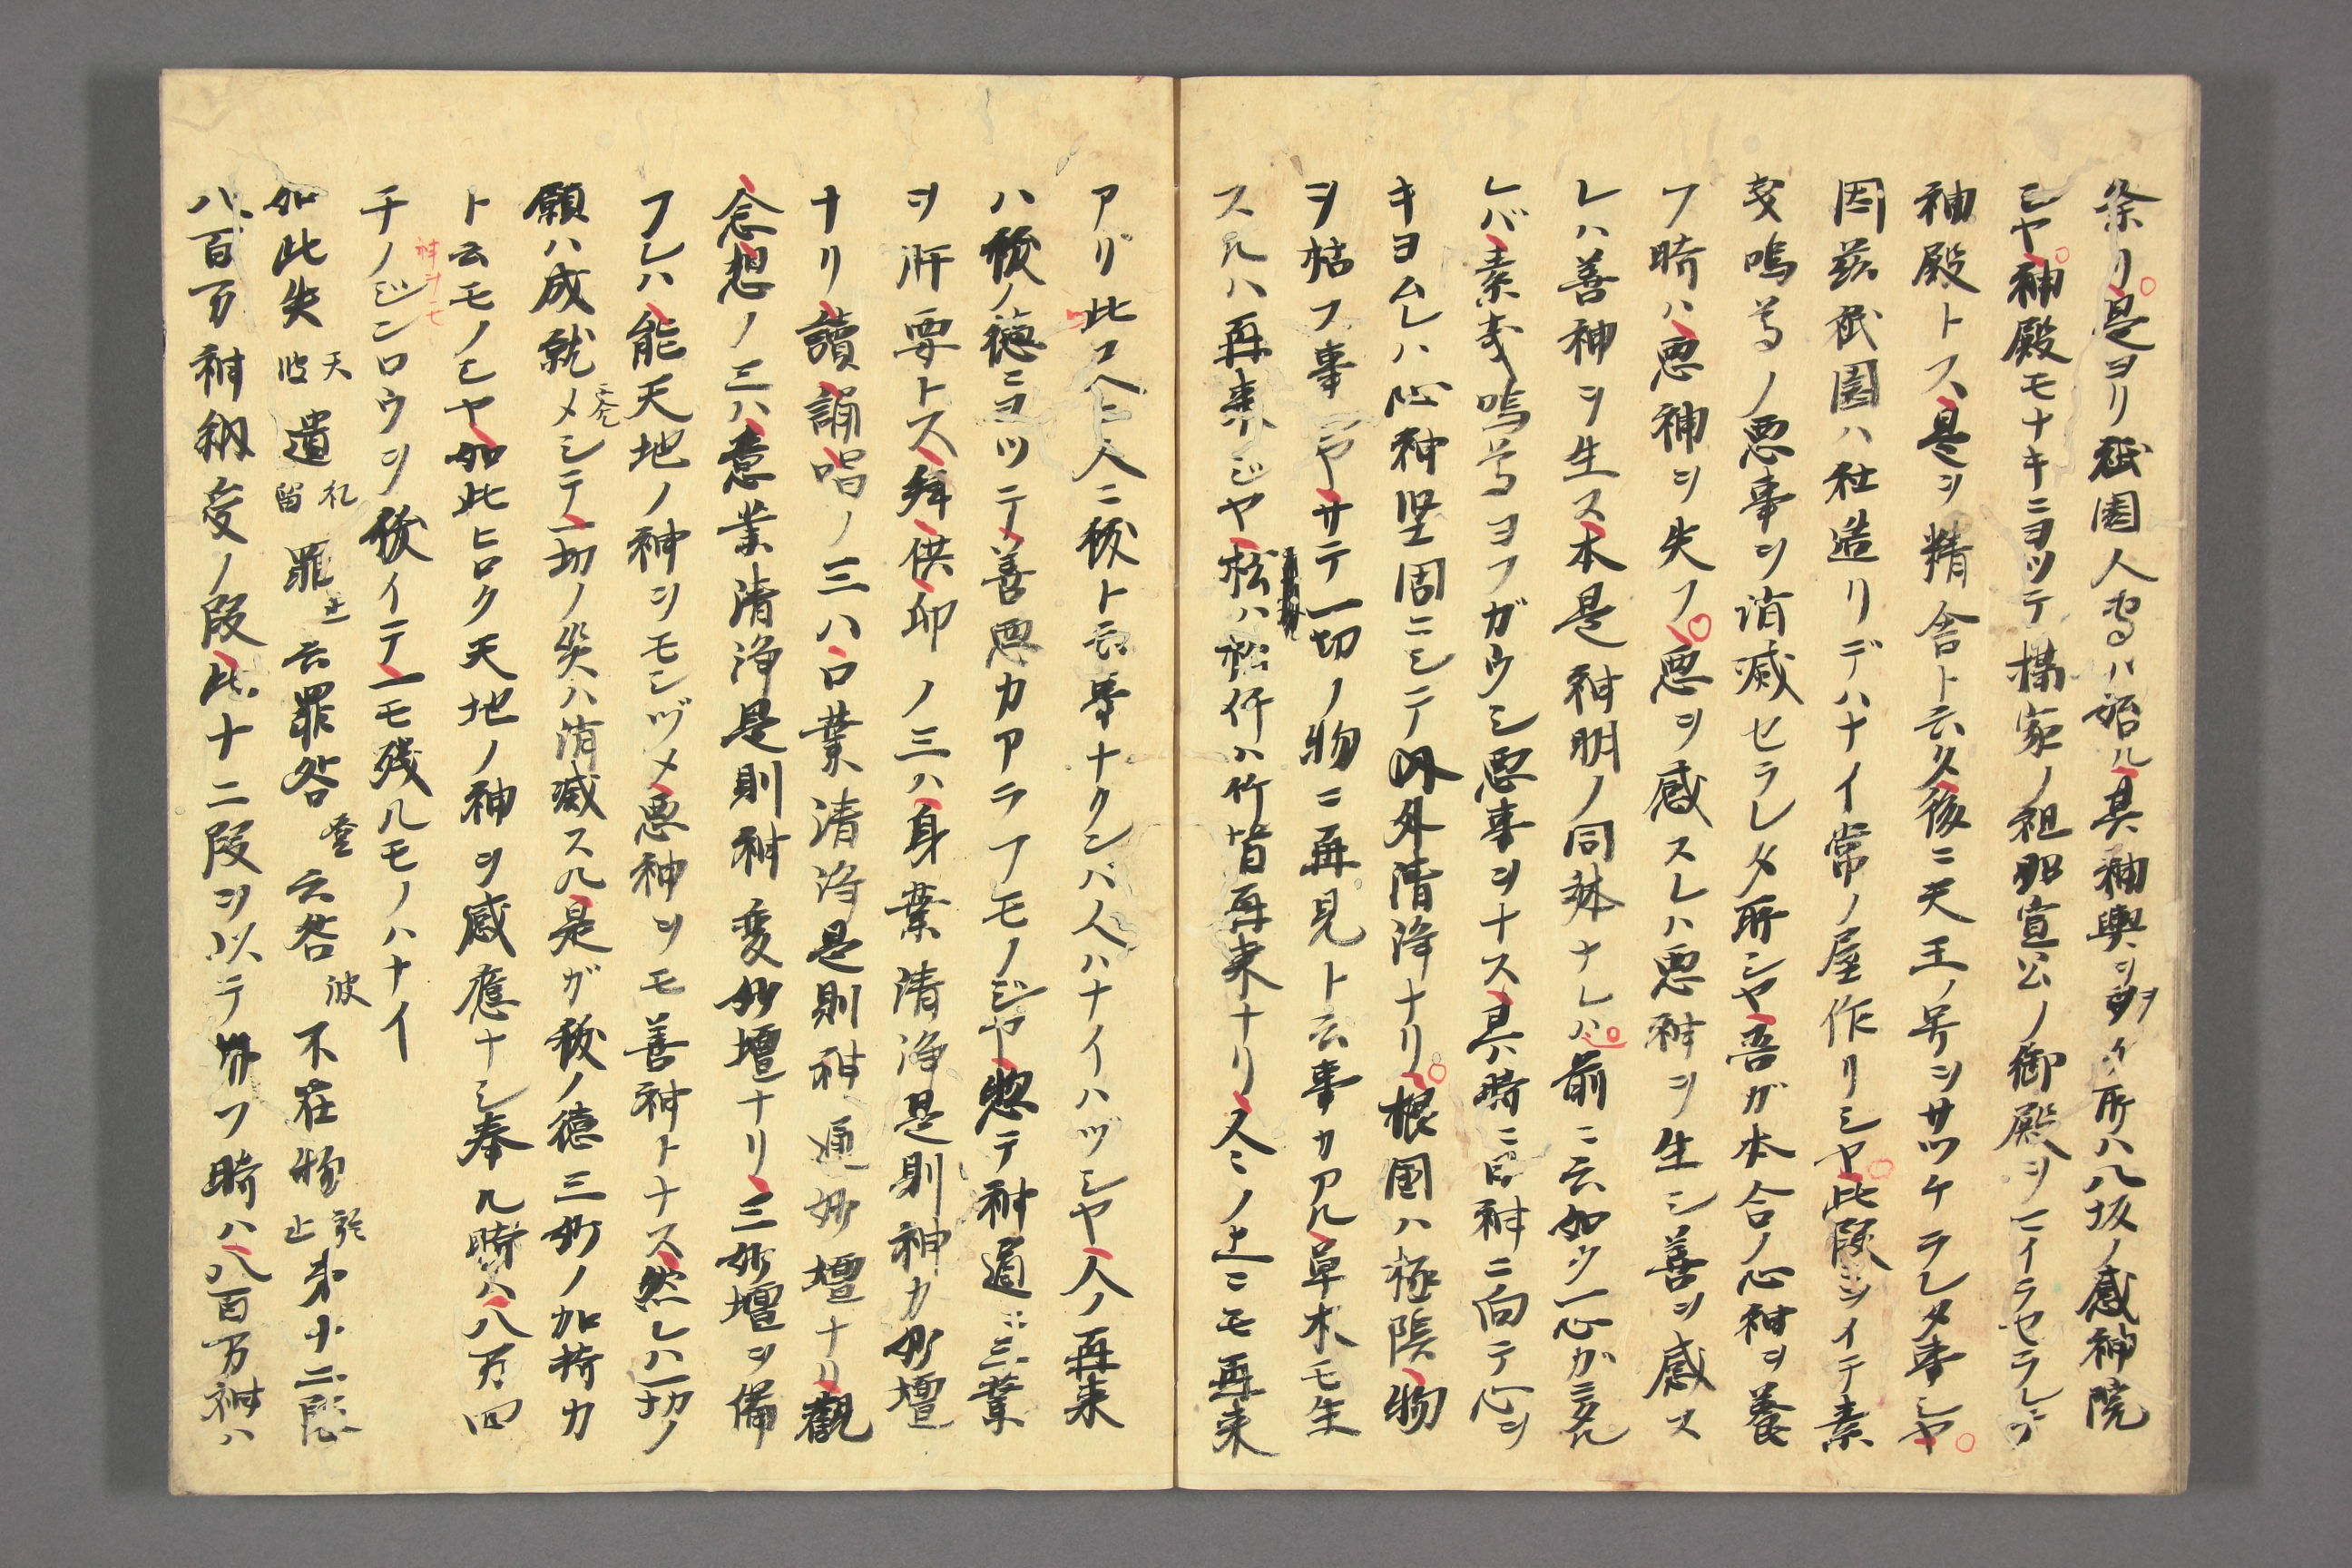 祭リ是ヨリ祇園會ハ始ル其神輿ヲ
イ所ハ八坂ノ感神院
シヤ神殿モナキニヨツテ攝家ノ祖昭宣公ノ御殿ヲ
神殿トス是ヲ精舎ト云久後ニ天王ノ号ヲサツケラレタ事シヤ
因茲祇園ハ社造リデハナイ常ノ屋作リシヤ此段ヲイテ素
戔嗚尊ノ悪事ヲ消滅セラレタ所シヤ吾ガ本合ノ心神ヲ養
フ時ハ悪神ヲ失フ悪ヲ感スレハ悪神ヲ生シ善ヲ感ス
レハ善神ヲ生ス本是神明ノ同躰ナレハ前ニ云如ク一心ガミタル
レバ素戔嗚尊ヨフガウシ悪事ヲナス其時ニ日神ニ向テ心ヲ
キヨムレハ心神堅固ニシテ内外清浄ナリ根国ハ極陰物
ヲ枯フ事シヤサテ一切ノ物ニ再見ト云事カアル草木モ生
スルハ再来ジヤ松ハ松竹ハ竹皆再来ナリ人ミノ上ニモ再来
アリ此コヘニ人ニ秡ト云事ナクンバ人ハナイハヅシヤ人ノ再来
ハ秡ノ徳ニヨツテ善悪カアラフモノジヤ惣テ神道ニ三業
ヲ肝要トス拜供印ノ三ハ身業清浄是則神力妙壇
ナリ讀誦唱ノ三ハ口業清浄是則神通妙壇ナリ觀
念想ノ三ハ意業清浄是則神変妙壇ナリ三妙壇ヲ備
フレハ能天地ノ神ヲモシヅメ悪神ヲモ善神トナス然レハ一切ノ
願ハ成就メシテ一切ノ災ハ消滅スル是ガ秡ノ徳三妙ノ加持力
ト云モノシヤ如此ヒロク天地ノ神ヲ感應ナシ奉ル時ハ八万四
チノジンロウヲ秡イテ一モ残ルモノハナイ
如此失天波遺礼留罪止云罪咎登云咎波不在物於止第十二段
八百万神納受ノ段此十二段ヲ以テ秡フ時ハ八百万神ハ